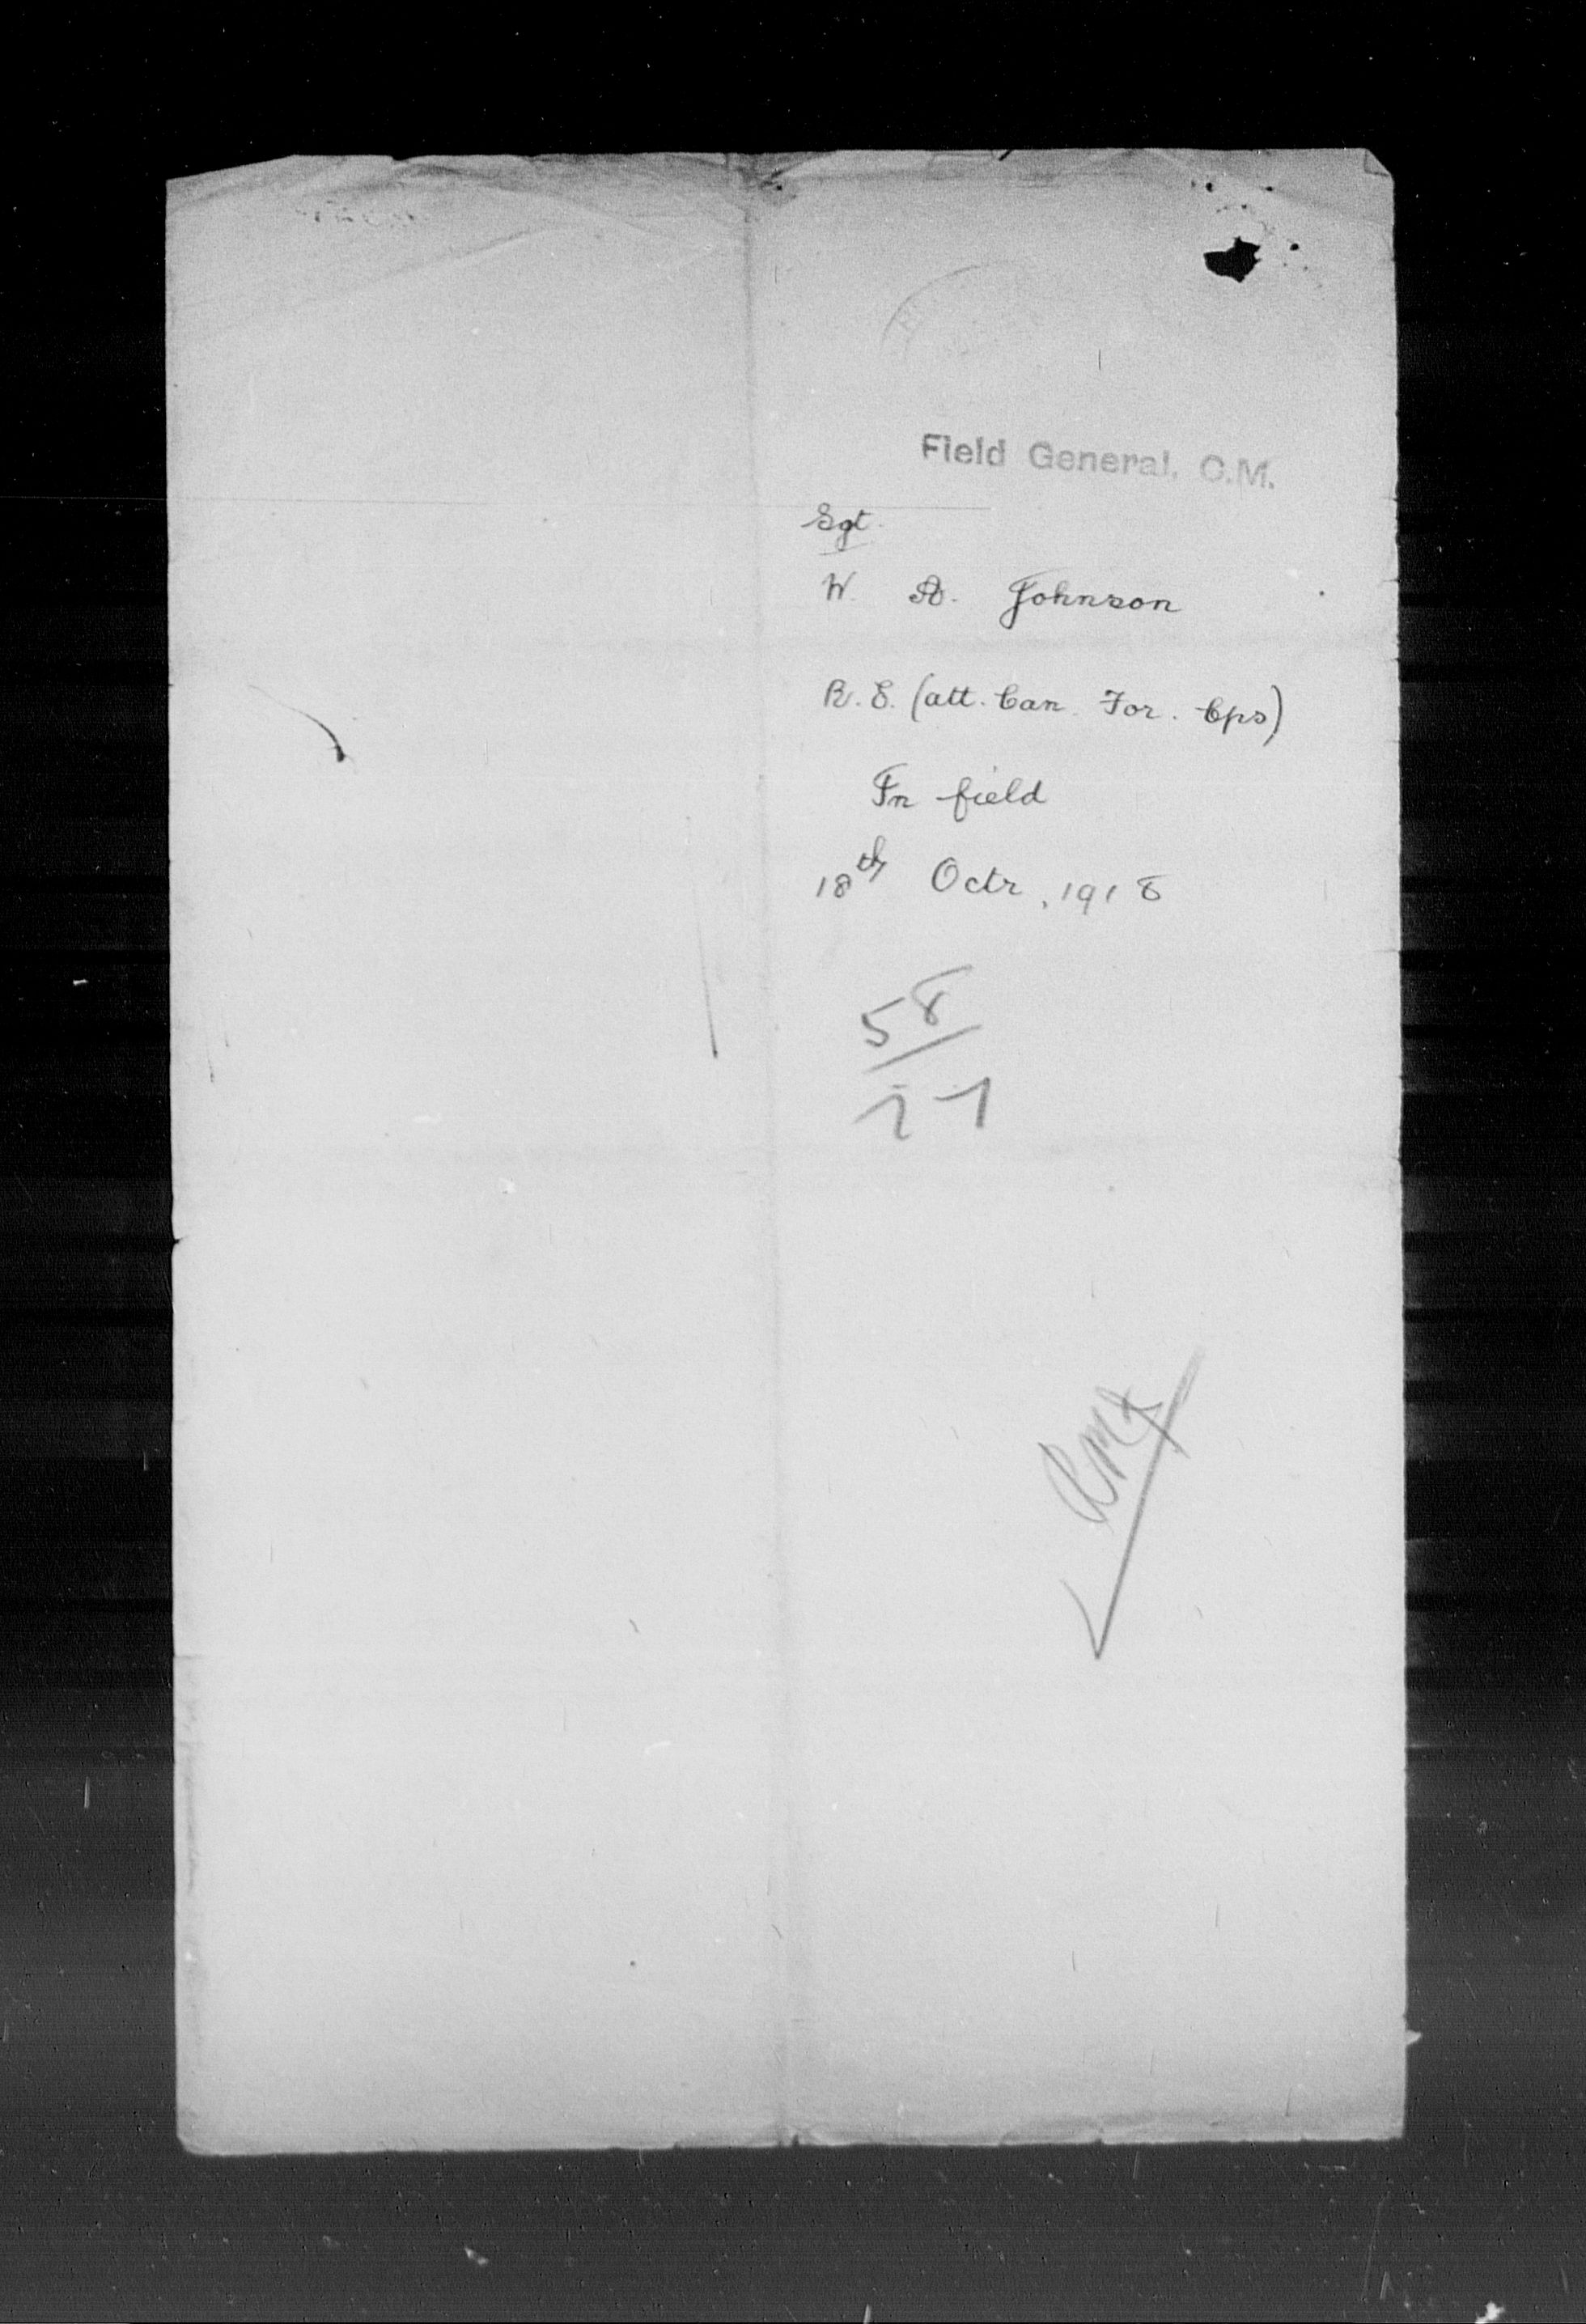 Field General. C.M.
Sgt.
W. A. Johnson
R.E. (att. Can. For. Cps)
In field
18th Octr, 1918
58/